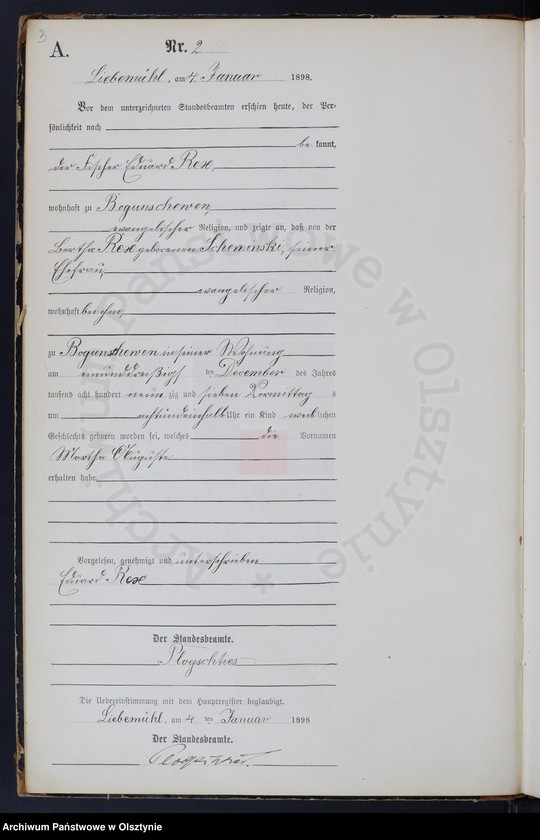 3
A.
Nr. 2
Liebemühl, am 4 Januar 1898.
Vor dem unterzeichneten Standesbeamten erschien heute, der Per-
sönlichkeit nach
be kannt,
der Fischer Eduard Rex,
wohnhaft zu Bogunschewen,
evangelischer Religion, und zeigte an, daß von der
Bertha Rex geborenen Scheminski, seiner
Ehefrau,
evangelischer Religion,
wohnhaft bei ihm,
zu Bogunschewen in seiner Wohnung
am einunddreißigsten December des Jahres
tausend acht hundert neun zig und sieben Vormittags
um achtundeinhalb Uhr ein Kind weiblichen
Geschlechts geboren worden sei, welches die Vornamen
Martha Auguste
erhalten habe.
Vorgelesen, genehmigt und unterschrieben
Eduard Rex
Der Standesbeamte.
Die Uebereinstimmung mit dem Hauptregister beglaubigt.
Liebemühl, am 4 ten Januar 1898
Der Standesbeamte.
Archiwum Państwowe w Olsztynie *
Archiwum Państwowe w Olsztynie